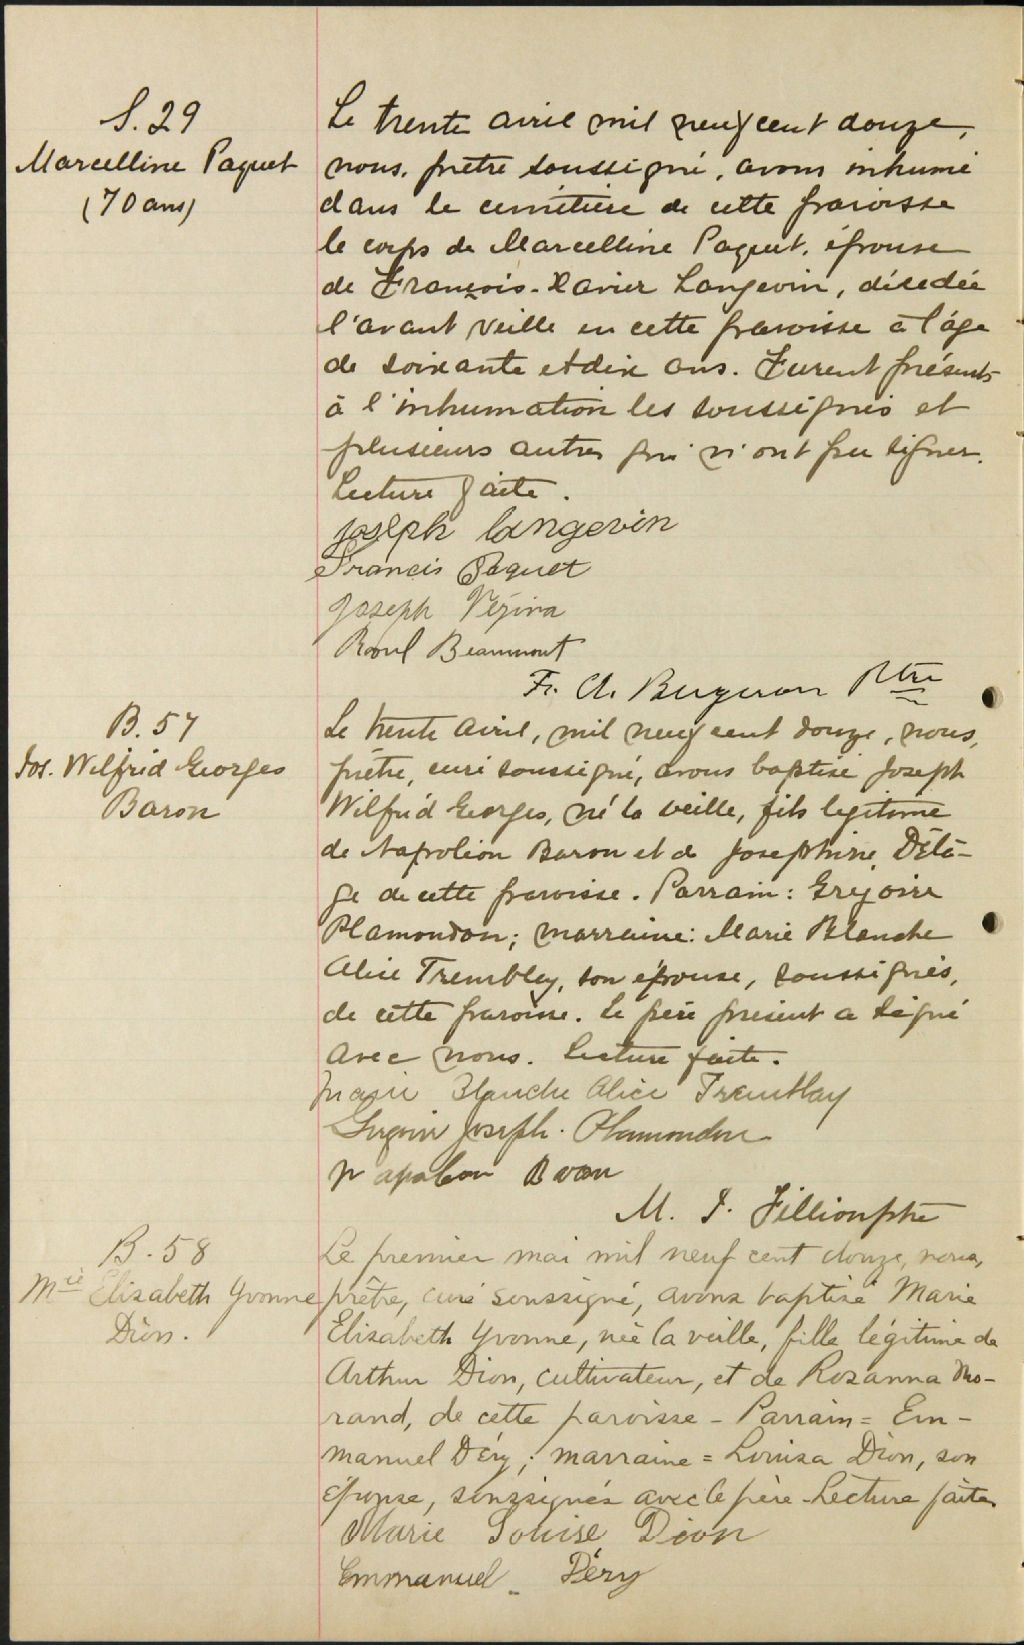 S. 29
Marcelline Paquet
(70 ans)
Le trente avril mil neuf cent douze,
nous, prêtre soussigné, avons inhumé
dans le cimetière de cette paroisse
le corps de Marcelline Paquet, épouse
de François-Xavier Langevin, décédée
l'avant veille en cette paroisse à l'âge
de soixante et dix ans. Furent présents
à l'inhumation les soussignés et
plusieurs autres qui n'ont pu signer.
Lecture faite.
Joseph Langevin
Francis Paquet
Joseph Vézina
Raoul Beaumont
F. X. Bergeron Ptre
B. 57
Jos. Wilfrid Georges
Baron
Le trente avril, mil neuf cent douze, nous,
prêtre, curé soussigné, avons baptisé Joseph
Wilfrid Georges, né la veille, fils legitime
de Napoléon Baron et de Josephine Délâ-
ge de cette paroisse. Parrain: Grégoire
Plamondon; marraine: Marie Blanche
Alice Tremblay, son épouse, soussignés,
de cette paroisse. Le père présent a signé
avec nous. Lecture faite.
Marie Blanche Alice Tremblay
Grégoire Joseph. Plamondon
Napoleon Baron
M. J. Fillion ptre
B. 58
Mie Elisabeth Yvonne
Dion.
Le premier mai mil neuf cent douze, nous,
prêtre, curé soussigné, avons baptisé Marie
Elisabeth Yvonne, née la veille, fille légitime de
Arthur Dion, cultivateur, et de Rosanna Mo-
rand, de cette paroisse - Parrain = Em-
manuel Déry; marraine = Louisa Dion, son
épouse, soussignés avec le père - Lecture faite
Marie Louise Dion
Emmanuel Déry